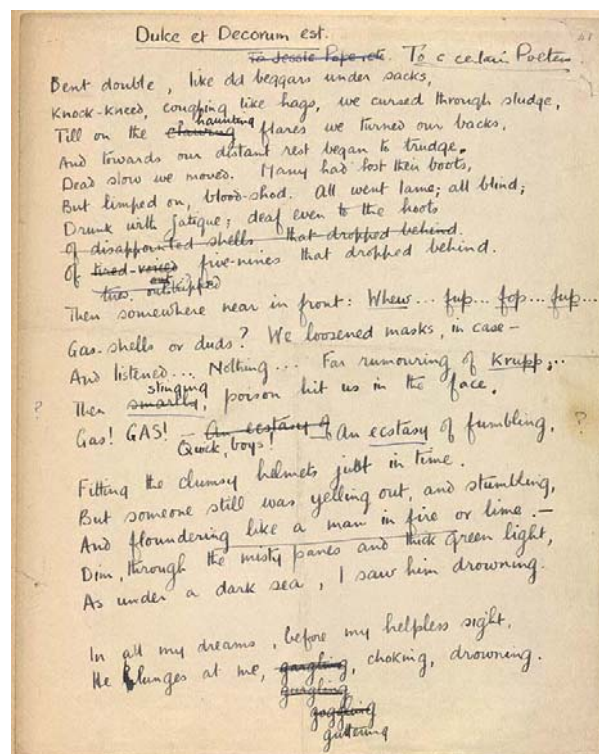 Dulce et Decorum est.
To Jessie Pope etc. To a certain Poetess.
Bent double, like old beggars under sacks,
Knock-kneed, coughing like hags, we cursed through sludge,
haunting
Till on the clawing flares we turned our backs,
And towards our distant rest began to trudge.
Dead slow we moved. Many had lost their boots,
But limped on, blood-shod. All went lame; all blind;
Drunk with fatigue; deaf even to the hoots
Of disappointed shells that dropped behind.
Of tired-voiced five-nines that dropped behind.
outstripped
Then somewhere near in front: Whew... fup... fop... fup...
Gas-shells or duds? We loosened masks, in case –
And listened... Nothing... Far rumouring of Krupp...
stinging
Then smartly, poison hit us in the face.
? Gas! GAS! – An ecstasy of – An ecstasy of fumbling, ?
Quick, boys!
Fitting the clumsy helmets just in time.
But someone still was yelling out, and stumbling,
And floundering like a man in fire or lime. –
Dim, through the misty panes and thick green light,
As under a dark sea, I saw him drowning.
In all my dreams, before my helpless sight,
He plunges at me, gargling, choking, drowning.
gurgling
goggling
guttering